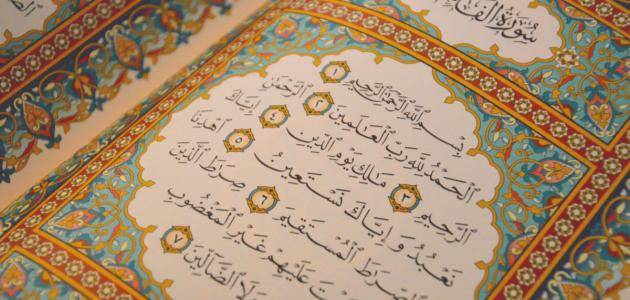 سُورَةُ
بِسْمِ ٱللَّهِ ٱلرَّحْمَٰنِ ٱلرَّحِيمِ ١
ٱلْحَمْدُ لِلَّهِ رَبِّ ٱلْعَالَمِينَ ٢ ٱلرَّحْمَٰنِ
ٱلرَّحِيمِ ٣ مَالِكِ يَوْمِ ٱلدِّينِ ٤ إِيَّاكَ
نَعْبُدُ وَإِيَّاكَ نَسْتَعِينُ ٥ ٱهْدِنَا
ٱلصِّرَاطَ ٱلْمُسْتَقِيمَ ٦ صِرَاطَ ٱلَّذِينَ
عَلَيْهِمْ غَيْرِ ٱلْمَغْضُوبِ
وَلَا ٱلضَّالِّينَ ٧